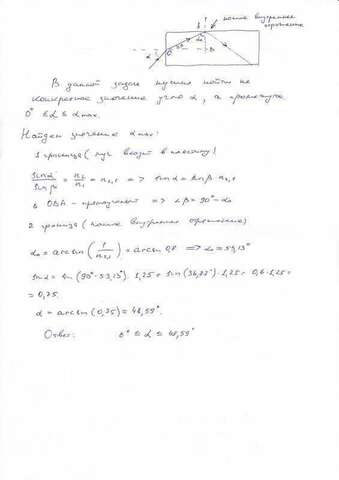 полное внутреннее
отражение
В данной задаче нужно найти не
конкретное значение угла α, а промежуток
0° ≤ α ≤ α max.
Найдем значение α max:
1 граница (луч входит в пластину)
sinα / sinβ = n2 / n1 = n2,1 => sinα = sinβ n2,1
Δ OBA - прямоугольный => ∠β = 90° - α0
2 граница (полное внутреннее отражение)
α0 = arcsin (1 / n2,1) = arcsin 0,8 => α0 = 53,13°
sinα = sin (90° - 53,13°) · 1,25 = sin (36,87°) · 1,25 = 0,6 · 1,25 =
= 0,75.
α = arcsin (0,75) = 48,59°
Ответ: 0° ≤ α ≤ 48,59°